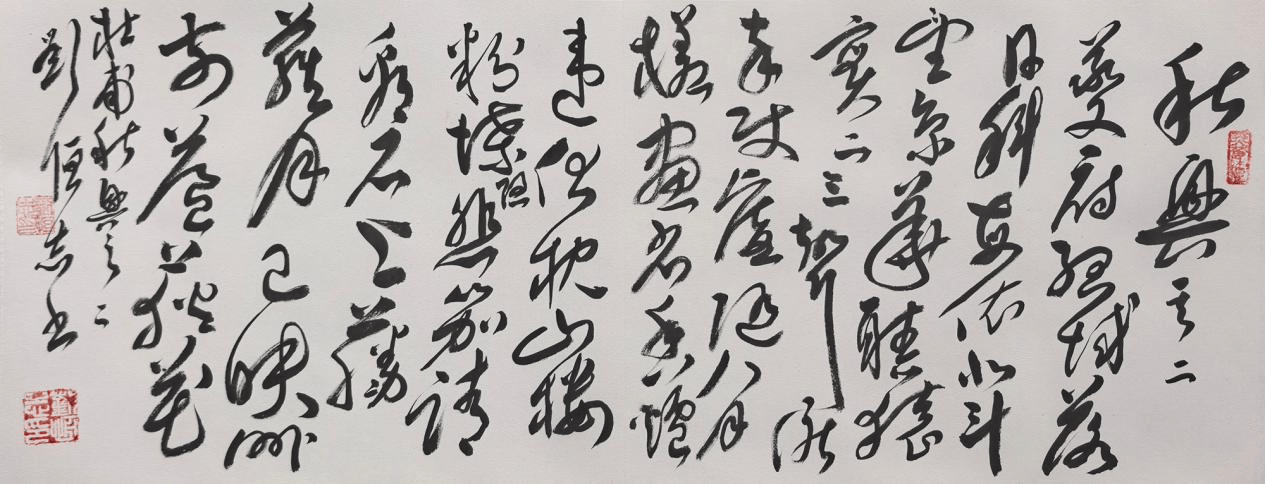 秋興其二
夔府孤城落
日斜每依北斗
望京華聽猿
實下三聲淚
奉使虛隨八月
槎畫省香爐
違伏枕山樓
粉堞隐悲笳請
看石上藤
蘿月已映洲
前蘆荻花
杜甫秋興之二
劉恒志书